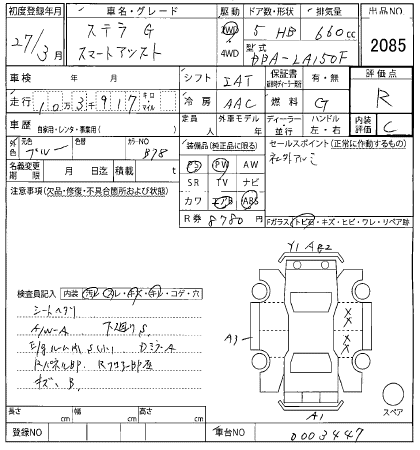 初度登録年月 車名・グレード 駆動 ドア数・形状 排気量 出品NO
27/3月 ステラ G スマートアシスト 2WD 4WD 5 HB 660cc 2085
型式 DBA-LA150F
車検 年 月 シフト IAT 保証書 有・無 評価点 R
走行 10万3千917 キロ マイル 冷房 AAC 燃料 G
車歴 自家用・レンタ・事業用( ) 定員 人 外車モデル ディーラー・並行 ハンドル 左・右 内装評価 C
外色 元色 ブルー 色替 カラーNO B78
装備品(純正品に限る) セールスポイント(正常に作動するもの)
PS PW AW 社外アルミ
名義変更期限 月 日迄 積載 t SR TV ナビ
注意事項(欠品・修復・不具合箇所および状態) カワ エアB ABS
R券 8780円 Fガラス(トビ石・キズ・ヒビ・ワレ・リペア跡)
Y1 A E2
検査員記入 内装(汚レ・スレ・キズ・キレ・コゲ・穴)
シートヘタリ
A/W-A 下廻りS
A1
キズ B
A1
スペア
長さ cm 幅 cm 高さ cm
登録NO 車台NO 0003447